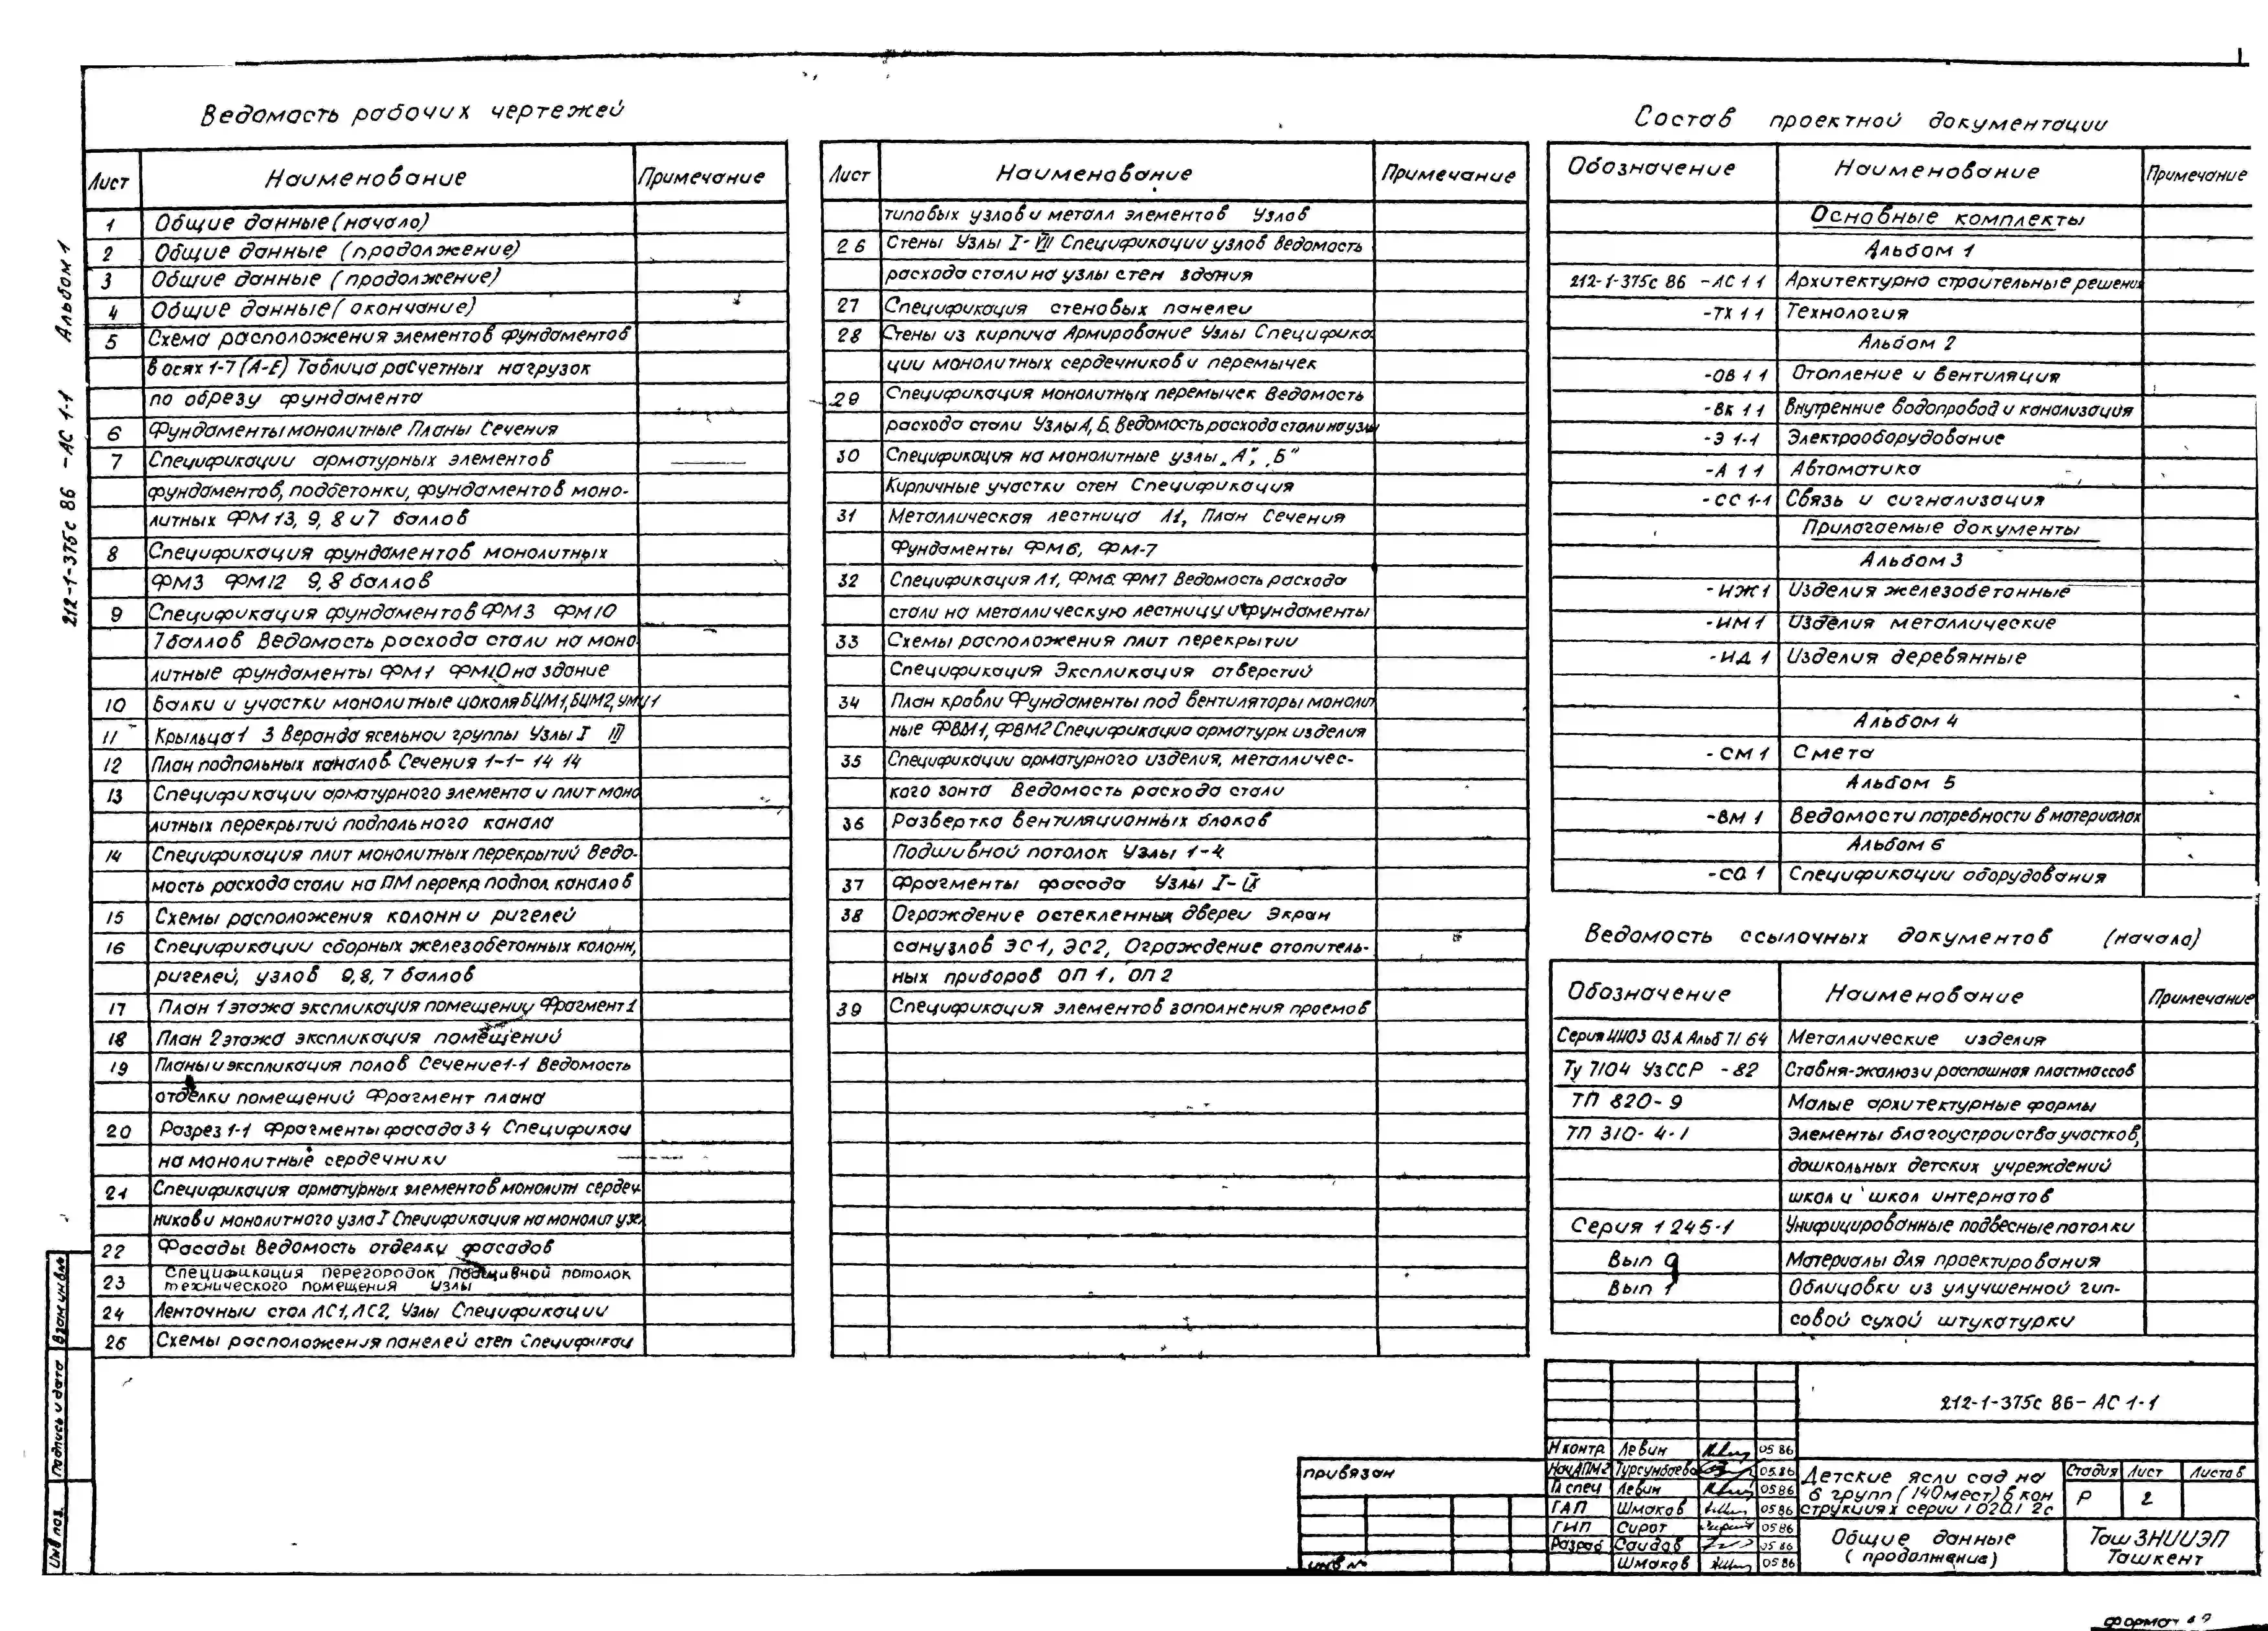 Ведомость рабочих чертежей
Лист Наименование Примечание
1 Общие данные (начало)
2 Общие данные (продолжение)
3 Общие данные (продолжение)
4 Общие данные (окончание)
5 Схема расположения элементов фундаментов
в осях 1-7 (А-Е) Таблица расчетных нагрузок
по обрезу фундамента
6 Фундаменты монолитные Планы Сечения
7 Спецификации арматурных элементов
фундаментов, подбетонки, фундаментов моно-
литных ФМ 13, 9, 8 и 7 баллов
8 Спецификация фундаментов монолитных
ФМ3 ФМ12 9, 8 баллов
9 Спецификация фундаментов ФМ3 ФМ10
7 баллов Ведомость расхода стали на моно
литные фундаменты ФМ1 ФМ10 на здание
10 Балки и участки монолитные цоколя БЦМ1, БЦМ2, УМЦ1
11 Крыльца 1 3 Веранда ясельной группы Узлы I III
12 План подпольных каналов Сечения 1-1- 14 14
13 Спецификации арматурного элемента и плит моно
литных перекрытий подпольного канала
14 Спецификация плит монолитных перекрытий Ведо-
мость расхода стали на ПМ перекр подпол каналов
15 Схемы расположения колонн и ригелей
16 Спецификации сборных железобетонных колонн,
ригелей, узлов 9, 8, 7 баллов
17 План 1 этажа экспликация помещении Фрагмент 1
18 План 2 этажа экспликация помещений
19 Планы и экспликация полов Сечение 1-1 Ведомость
отделки помещений Фрагмент плана
20 Разрез 1-1 Фрагменты фасада 3 4 Спецификац
на монолитные сердечники
21 Спецификация арматурных элементов монолитн сердеч
ников и монолитного узла I Спецификация на монолит узел
22 Фасады Ведомость отделки фасадов
23 Спецификация перегородок Подшивной потолок
технического помещения Узлы
24 Ленточный стол ЛС1, ЛС2, Узлы Спецификации
25 Схемы расположения панелей стен Спецификац
Лист Наименование Примечание
типовых узлов и металл элементов Узлов
26 Стены Узлы I-VIII Спецификации узлов Ведомость
расхода стали на узлы стен здания
27 Спецификация стеновых панелей
28 Стены из кирпича Армирование Узлы Специфика
ции монолитных сердечников и перемычек
29 Спецификация монолитных перемычек Ведомость
расхода стали Узлы А, Б. Ведомость расхода стали на узлы
30 Спецификация на монолитные узлы „А", „Б"
Кирпичные участки стен Спецификация
31 Металлическая лестница Л1, План Сечения
Фундаменты ФМ6, ФМ-7
32 Спецификация Л1, ФМ6 ФМ7 Ведомость расхода
стали на металлическую лестницу и фундаменты
33 Схемы расположения плит перекрытии
Спецификация Экспликация отверстий
34 План кровли Фундаменты под вентиляторы монолит
ные ФВМ1, ФВМ2 Спецификация арматурн изделия
35 Спецификации арматурного изделия, металличес-
кого зонта Ведомость расхода стали
36 Развертка вентиляционных блоков
Подшивной потолок Узлы 1-4
37 Фрагменты фасада Узлы I-IX
38 Ограждение остекленных дверей Экран
санузлов ЭС1, ЭС2, Ограждение отопитель-
ных приборов ОП 1, ОП 2
39 Спецификация элементов заполнения проемов
Состав проектной документации
Обозначение Наименование Примечание
Основные комплекты
Альбом 1
212-1-375с 86 -АС 1 1 Архитектурно строительные решения
-ТХ 1 1 Технология
Альбом 2
-ОВ 1 1 Отопление и вентиляция
-ВК 1 1 Внутренние водопровод и канализация
-Э 1-1 Электрооборудование
-А 1 1 Автоматика
-СС 1-1 Связь и сигнализация
Прилагаемые документы
Альбом 3
-ИЖ 1 Изделия железобетонные
-ИМ 1 Изделия металлические
-ИД 1 Изделия деревянные
Альбом 4
-СМ 1 Смета
Альбом 5
-ВМ 1 Ведомости потребности в материалах
Альбом 6
-СО 1 Спецификации оборудования
Ведомость ссылочных документов (начало)
Обозначение Наименование Примечание
Серия ИИ03 03 А Альб 71 64 Металлические изделия
Ту 7104 УзССР -82 Ставня-жалюзи распашная пластмассов
ТП 820-9 Малые архитектурные формы
ТП 310-4-1 Элементы благоустройства участков,
дошкольных детских учреждений
школ и школ интернатов
Серия 1 245-1 Унифицированные подвесные потолки
Вып 9 Материалы для проектирования
Вып 1 Облицовки из улучшенной гип-
совой сухой штукатурки
212-1-375с 86- АС 1-1
Н контр Левин 05 86
Нач АПМ-2 Турсунбаева 05.86
Гл спец Левин 05 86
ГАП Шмаков 05 86
ГИП Сират 05 86
Разраб Саидов 05 86
Шмаков 05 86
Детские ясли сад на
6 групп (140 мест) в кон
струкциях серии 1 020.1 2с
Стадия Лист Листов
Р 2
Общие данные
(продолжение)
Таш ЗНИИЭП
Ташкент
привязан
инв №
Формат А2
212-1-375с 86 -АС 1-1 Альбом 1
Инв поз. Подпись и дата Взам инв №